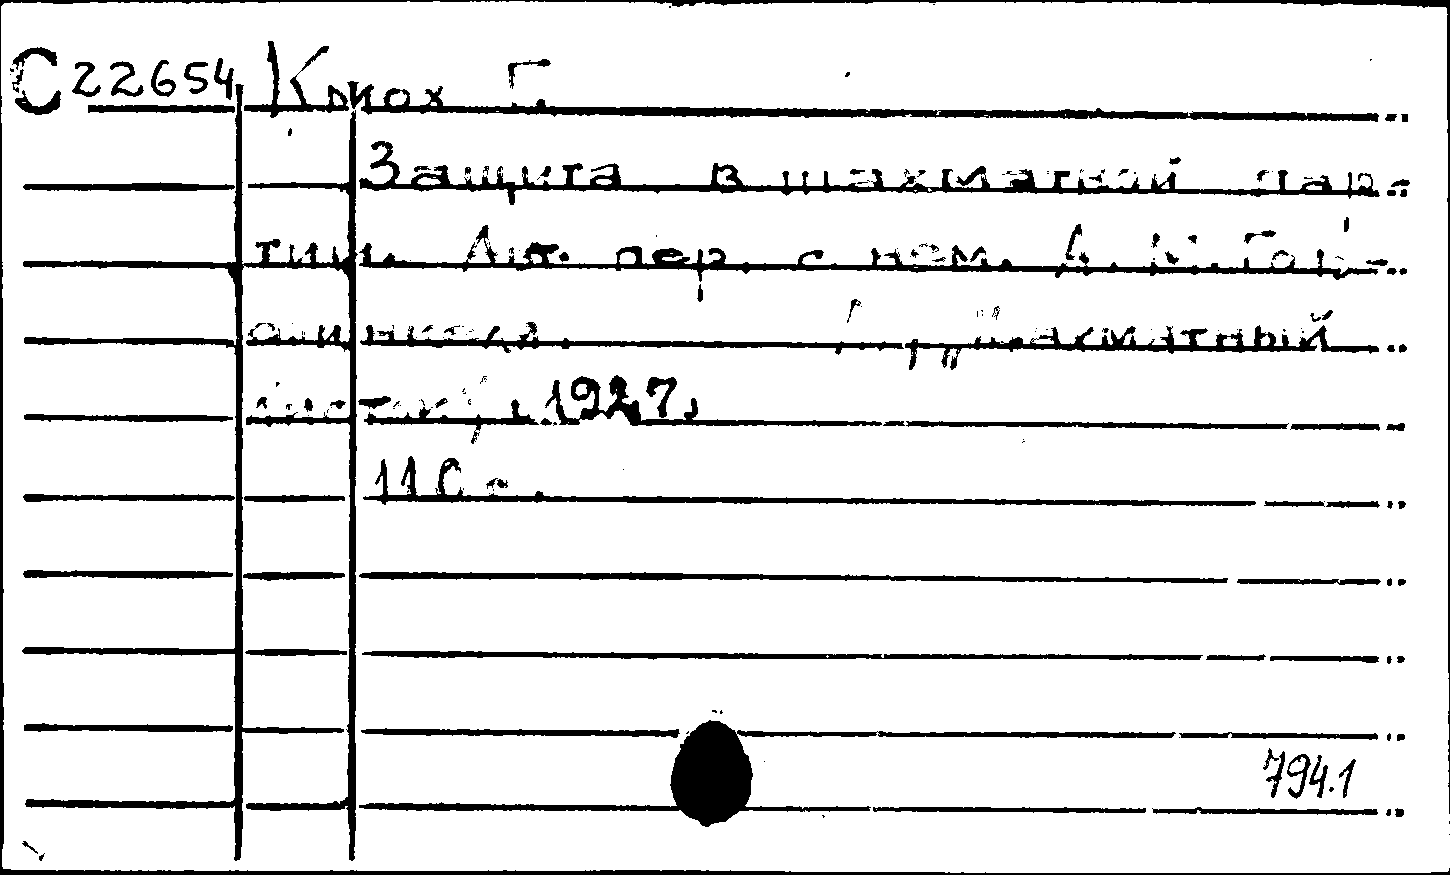 С22654 Кмох Г.
Защита в шахматной пар-
тии. Авт. пер. с нем. А. М. Гор-
динкера. Л., „Шахматный
листок", 1927.
110 с.
794.1